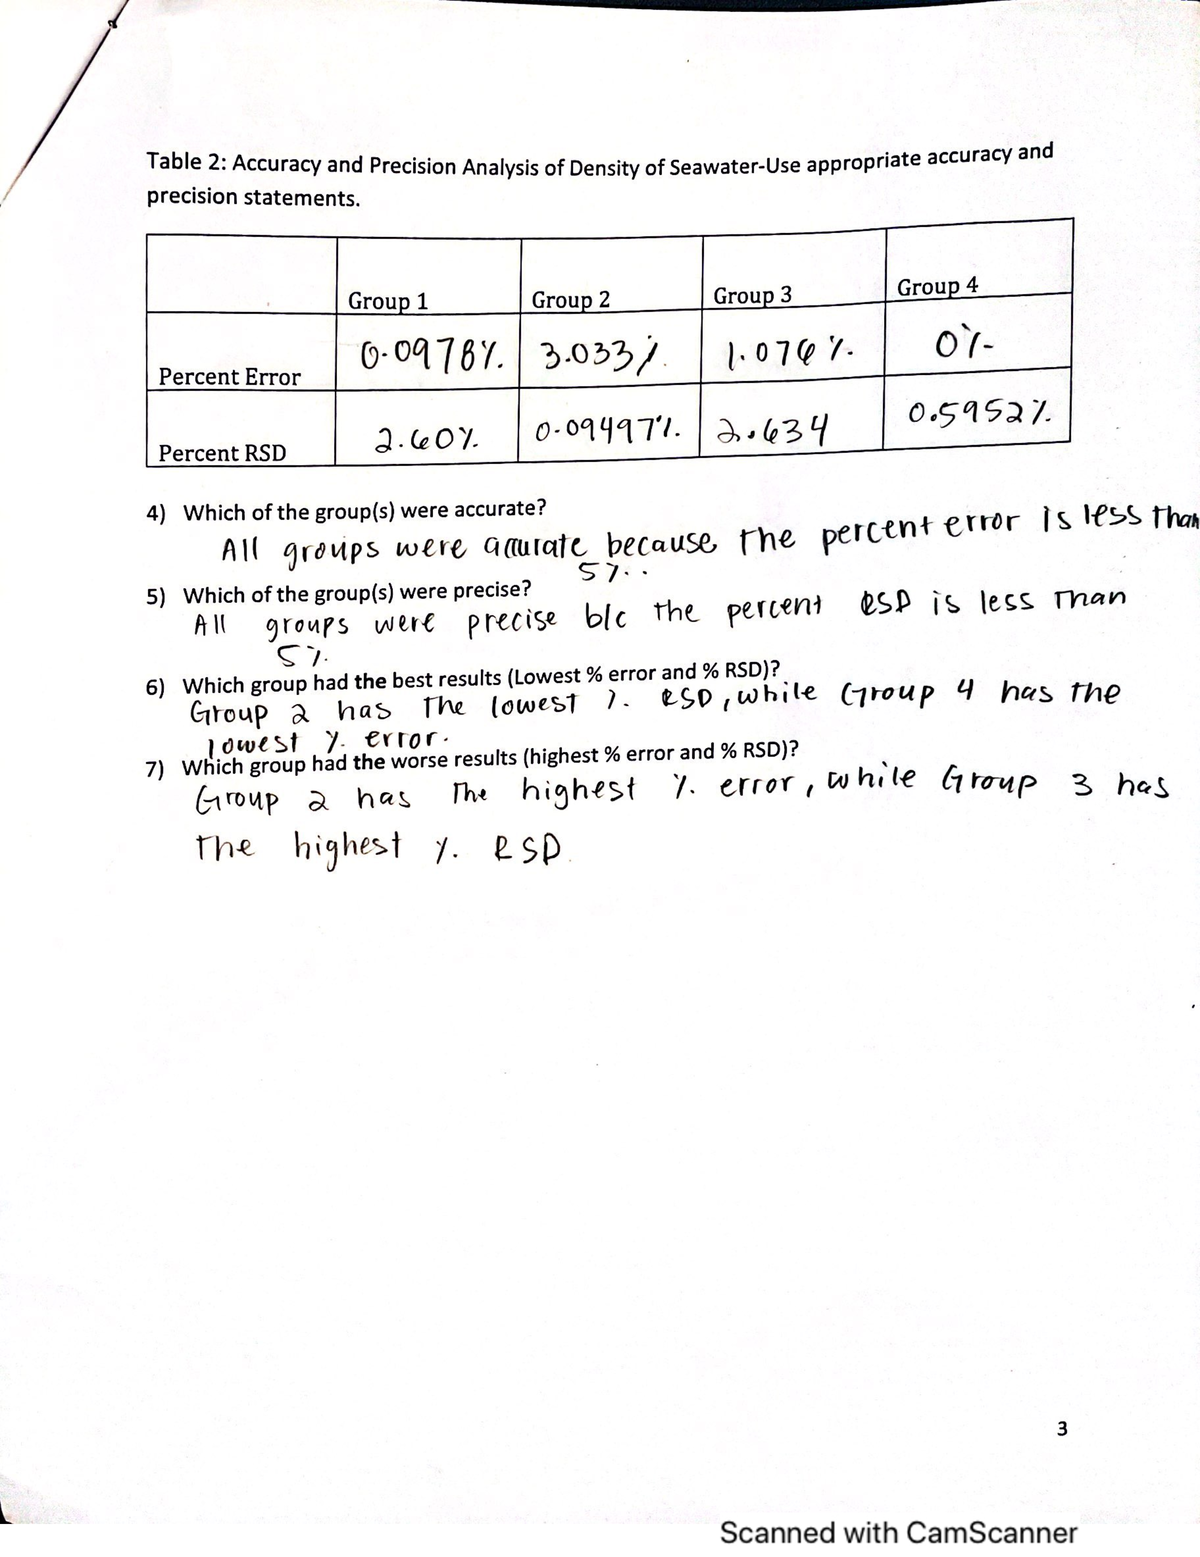 Table 2: Accuracy and Precision Analysis of Density of Seawater-Use appropriate accuracy and
precision statements.
Group 1 Group 2 Group 3 Group 4
Percent Error 0.0978% 3.033% 1.076% 0%
Percent RSD 2.60% 0.09497% 2.634 0.5952%
4) Which of the group(s) were accurate?
All groups were accurate because the percent error is less than
5%.
5) Which of the group(s) were precise?
All groups were precise b/c the percent RSD is less than
5%.
6) Which group had the best results (Lowest % error and % RSD)?
Group 2 has the lowest % RSD, while Group 4 has the
lowest % error.
7) Which group had the worse results (highest % error and % RSD)?
Group 2 has the highest % error, while Group 3 has
the highest % RSD
3
Scanned with CamScanner